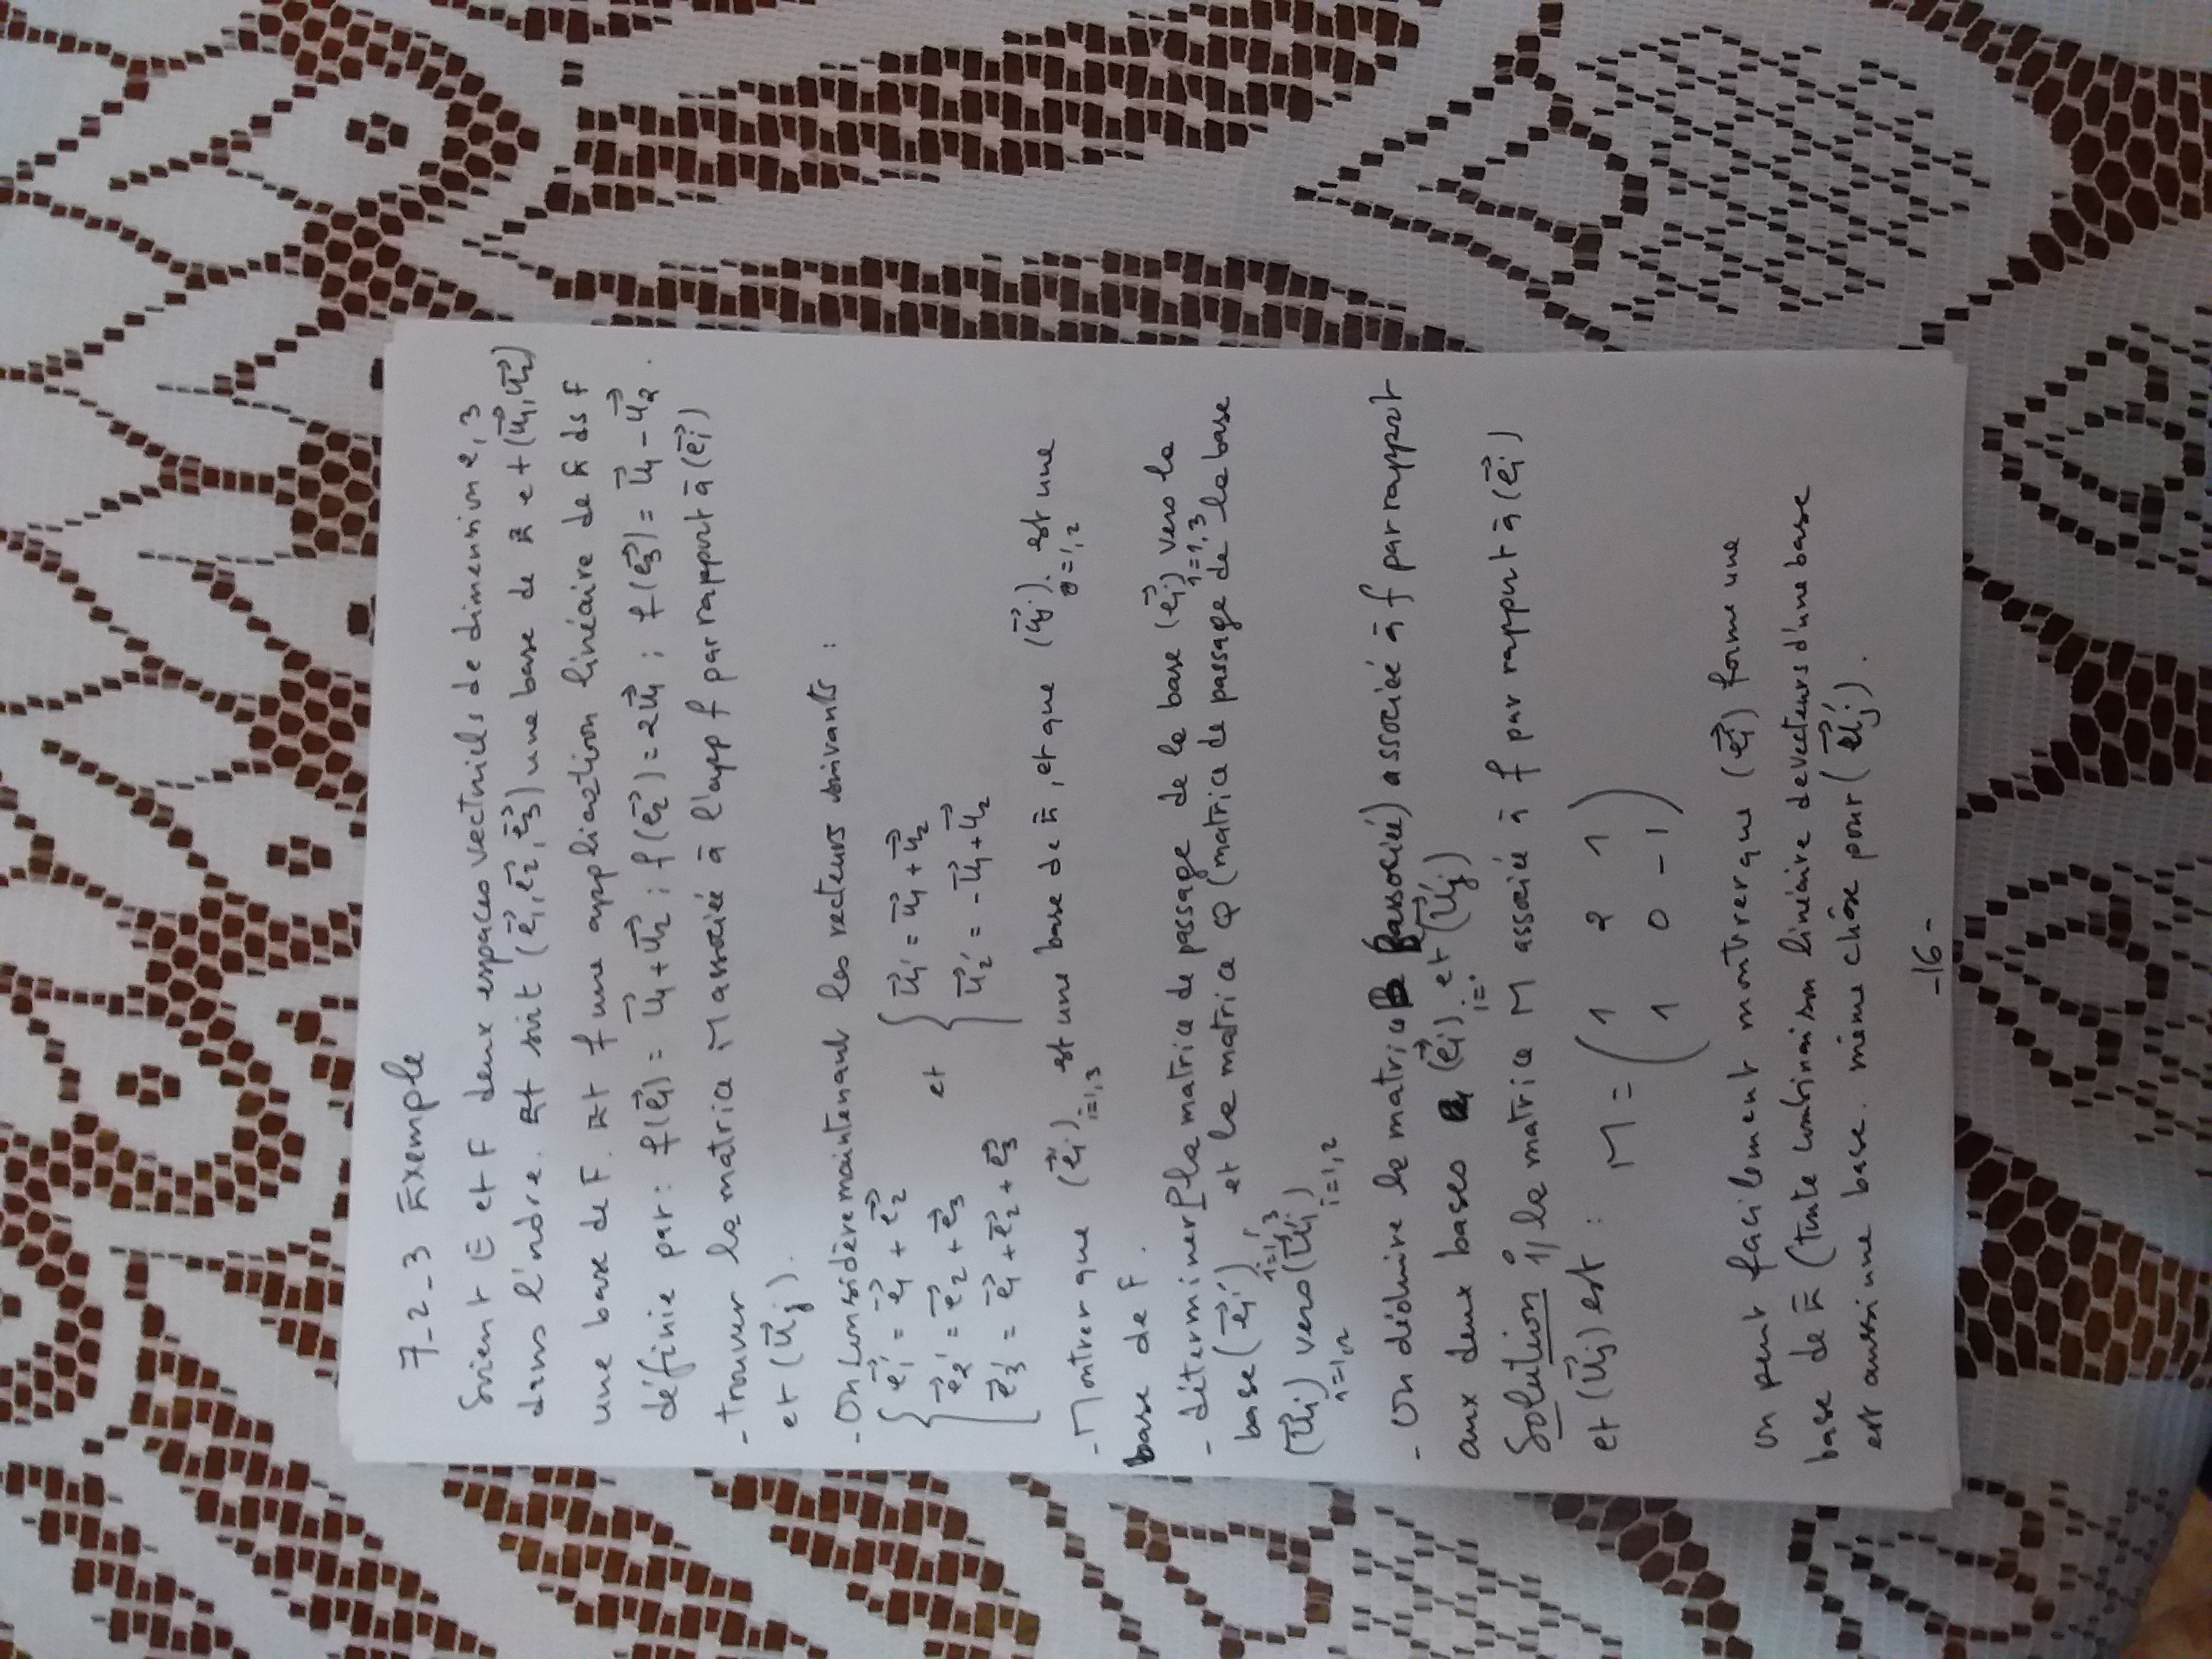 7-2-3 Exemple
Soient E et F deux espaces vectoriels de dimension 2, 3
dans l'ordre. Et soit (e⃗1, e⃗2, e⃗3) une base de E et (u⃗1, u⃗2)
une base de F. Et f une application linéaire de E ds F
définie par : f(e⃗1) = u⃗1 + u⃗2 ; f(e⃗2) = 2u⃗1 ; f(e⃗3) = u⃗1 - u⃗2.
- trouver la matrice M associée à l'app f par rapport à (e⃗i)
et (u⃗j).
- On considère maintenant les vecteurs suivants :
{ e⃗1' = e⃗1 + e⃗2 et { u⃗1' = u⃗1 + u⃗2
e⃗2' = e⃗2 + e⃗3 u⃗2' = -u⃗1 + u⃗2
e⃗3' = e⃗1 + e⃗2 + e⃗3
- Montrer que (e⃗i') i=1,3 est une base de E, et que (u⃗j') j=1,2 est une
base de F.
- déterminer P la matrice de passage de la base (e⃗i) i=1,3 vers la
base (e⃗i') i=1,3 et la matrice Q (matrice de passage de la base
(u⃗i) i=1,2 vers (u⃗i') i=1,2
- On déduire la matrice B associée) associée à f par rapport
aux deux bases (e⃗i') et (u⃗j')
Solution 1, la matrice M associée à f par rapport à (e⃗i)
et (u⃗j) est : M = ( 1 2 1
1 0 -1 )
on peut facilement montrer que (e⃗i') forme une
base de E (toute combinaison linéaire de vecteurs d'une base
est aussi une base. même chôse pour (u⃗j').
-16-